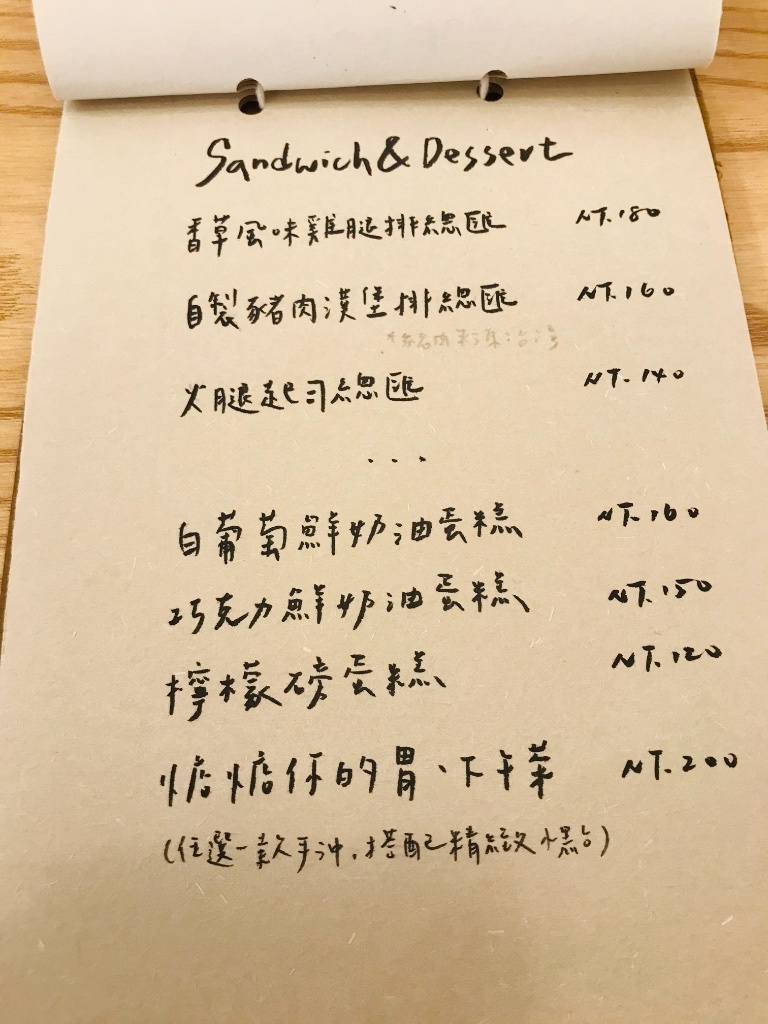 Sandwich & Dessert
香草風味雞腿排總匯 NT.180
自製豬肉漢堡排總匯 NT.160
火腿起司總匯 NT.140
...
白葡萄鮮奶油蛋糕 NT.160
巧克力鮮奶油蛋糕 NT.150
檸檬磅蛋糕 NT.120
惦惦你的胃、下午茶 NT.200
(任選一款手沖,搭配精緻小點)